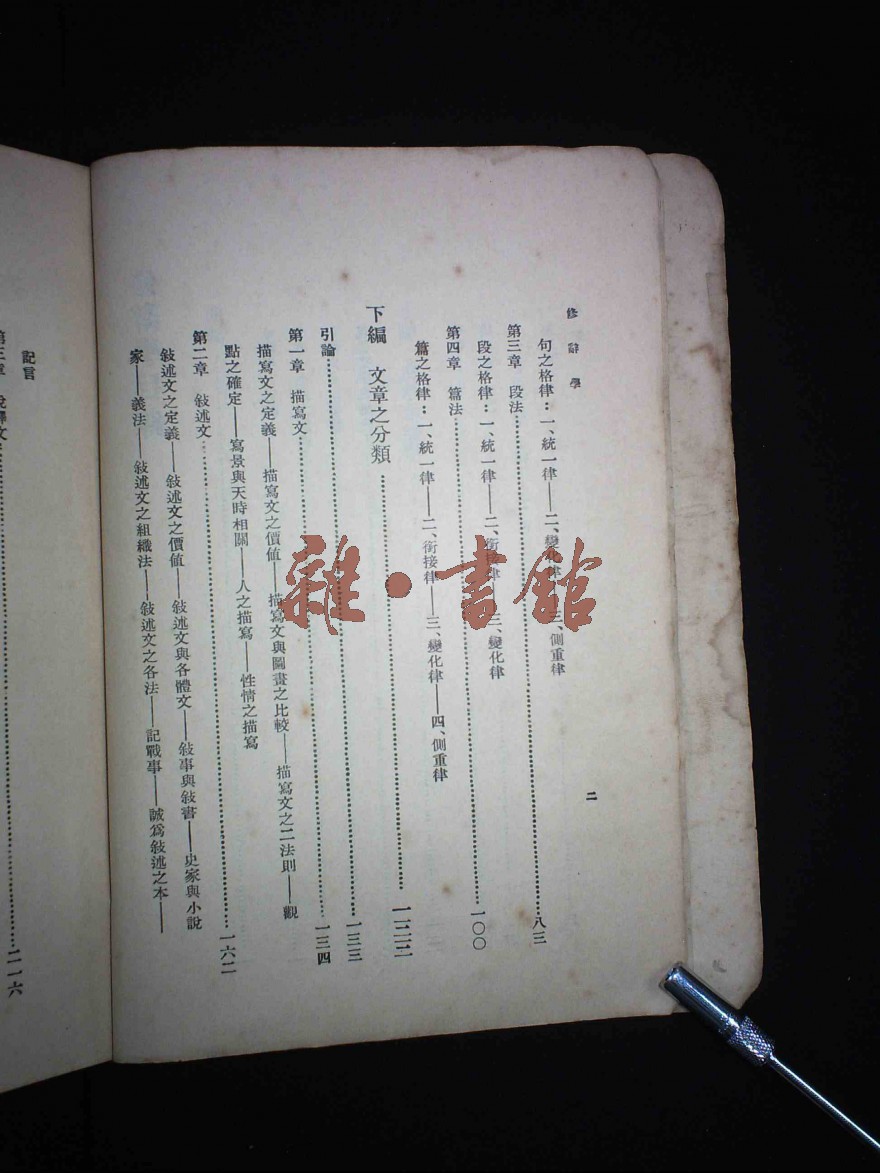 修辭學
二
句之格律：一、統一律——二、變化律——三、側重律
第三章　段法……八三
段之格律：一、統一律——二、銜接律——三、變化律
第四章　篇法……一〇〇
篇之格律：一、統一律——二、銜接律——三、變化律——四、側重律
下編　文章之分類……
引論……一三三
第一章　描寫文……一三四
描寫文之定義——描寫文之價值——描寫文與圖畫之比較——描寫文之二法則——觀
點之確定——寫景與天時相關——人之描寫——性情之描寫
第二章　敍述文……一六二
敍述文之定義——敍述文之價值——敍述文與各體文——敍事與敍書——史家與小說
家——義法——敍述文之組織法——敍述文之各法——記戰事——誠爲敍述之本——
記言
第三章……二一六
雜·書館